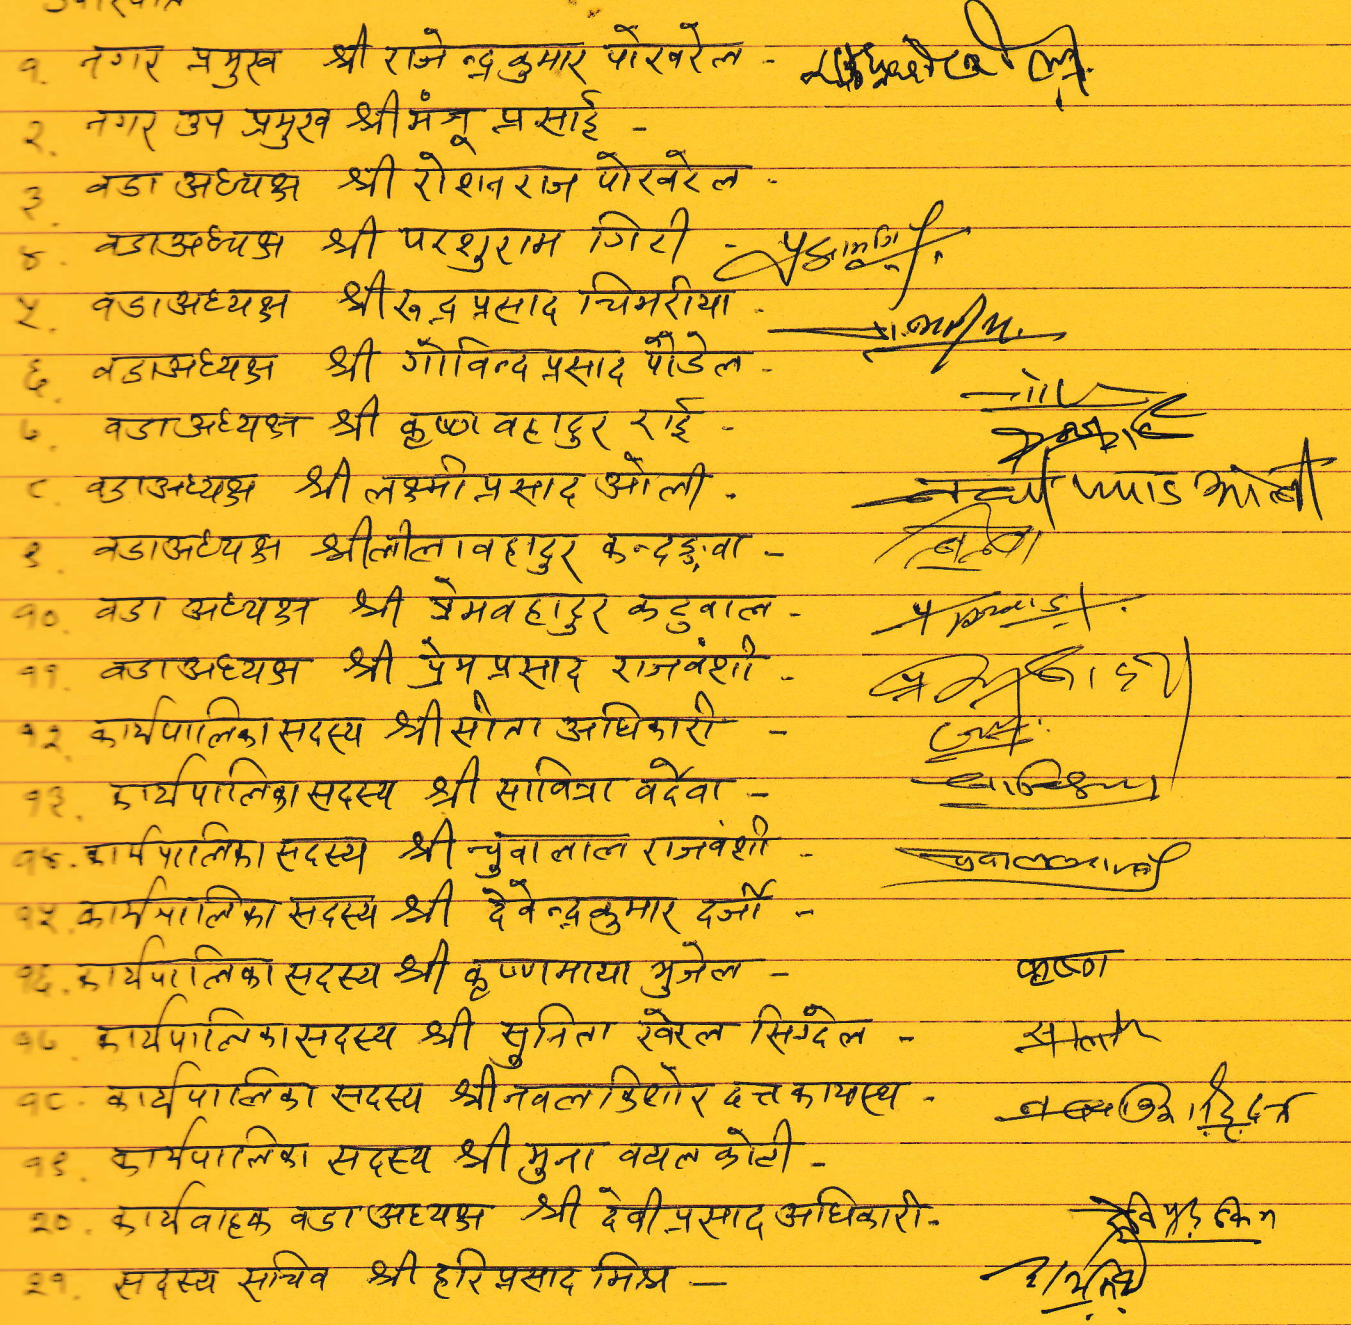 उपस्थिति
१. नगर प्रमुख श्री राजेन्द्रकुमार पोखरेल -
२. नगर उप प्रमुख श्री मंजू प्रसाई -
३. वडा अध्यक्ष श्री रोशनराज पोखरेल -
४. वडाअध्यक्ष श्री परशुराम गिरी -
५. वडाअध्यक्ष श्री रुद्र प्रसाद चिमरीया -
६. वडाअध्यक्ष श्री गोविन्द प्रसाद पौडेल -
७. वडाअध्यक्ष श्री कृष्ण वहादुर राई -
८. वडाअध्यक्ष श्री लक्ष्मी प्रसाद ओली -
९. वडाअध्यक्ष श्री लीला वहादुर कन्दङ्वा -
१०. वडा अध्यक्ष श्री प्रेमवहादुर कटुवाल -
११. वडाअध्यक्ष श्री प्रेम प्रसाद राजवंशी -
१२. कार्यपालिका सदस्य श्री सीता अधिकारी -
१३. कार्यपालिका सदस्य श्री सावित्रा वर्देवा -
१४. कार्यपालिका सदस्य श्री चुवालाल राजवंशी -
१५. कार्यपालिका सदस्य श्री देवेन्द्रकुमार दर्जी -
१६. कार्यपालिका सदस्य श्री कृष्णमाया भुजेल - कृष्ण
१७. कार्यपालिका सदस्य श्री सुनिता खरेल सिग्देल -
१८. कार्यपालिका सदस्य श्री नवल किशोर दत्त कायस्थ -
१९. कार्यपालिका सदस्य श्री मुना वयलकोटी -
२०. कार्यवाहक वडा अध्यक्ष श्री देवी प्रसाद अधिकारी -
२१. सदस्य सचिव श्री हरि प्रसाद मिश्र -